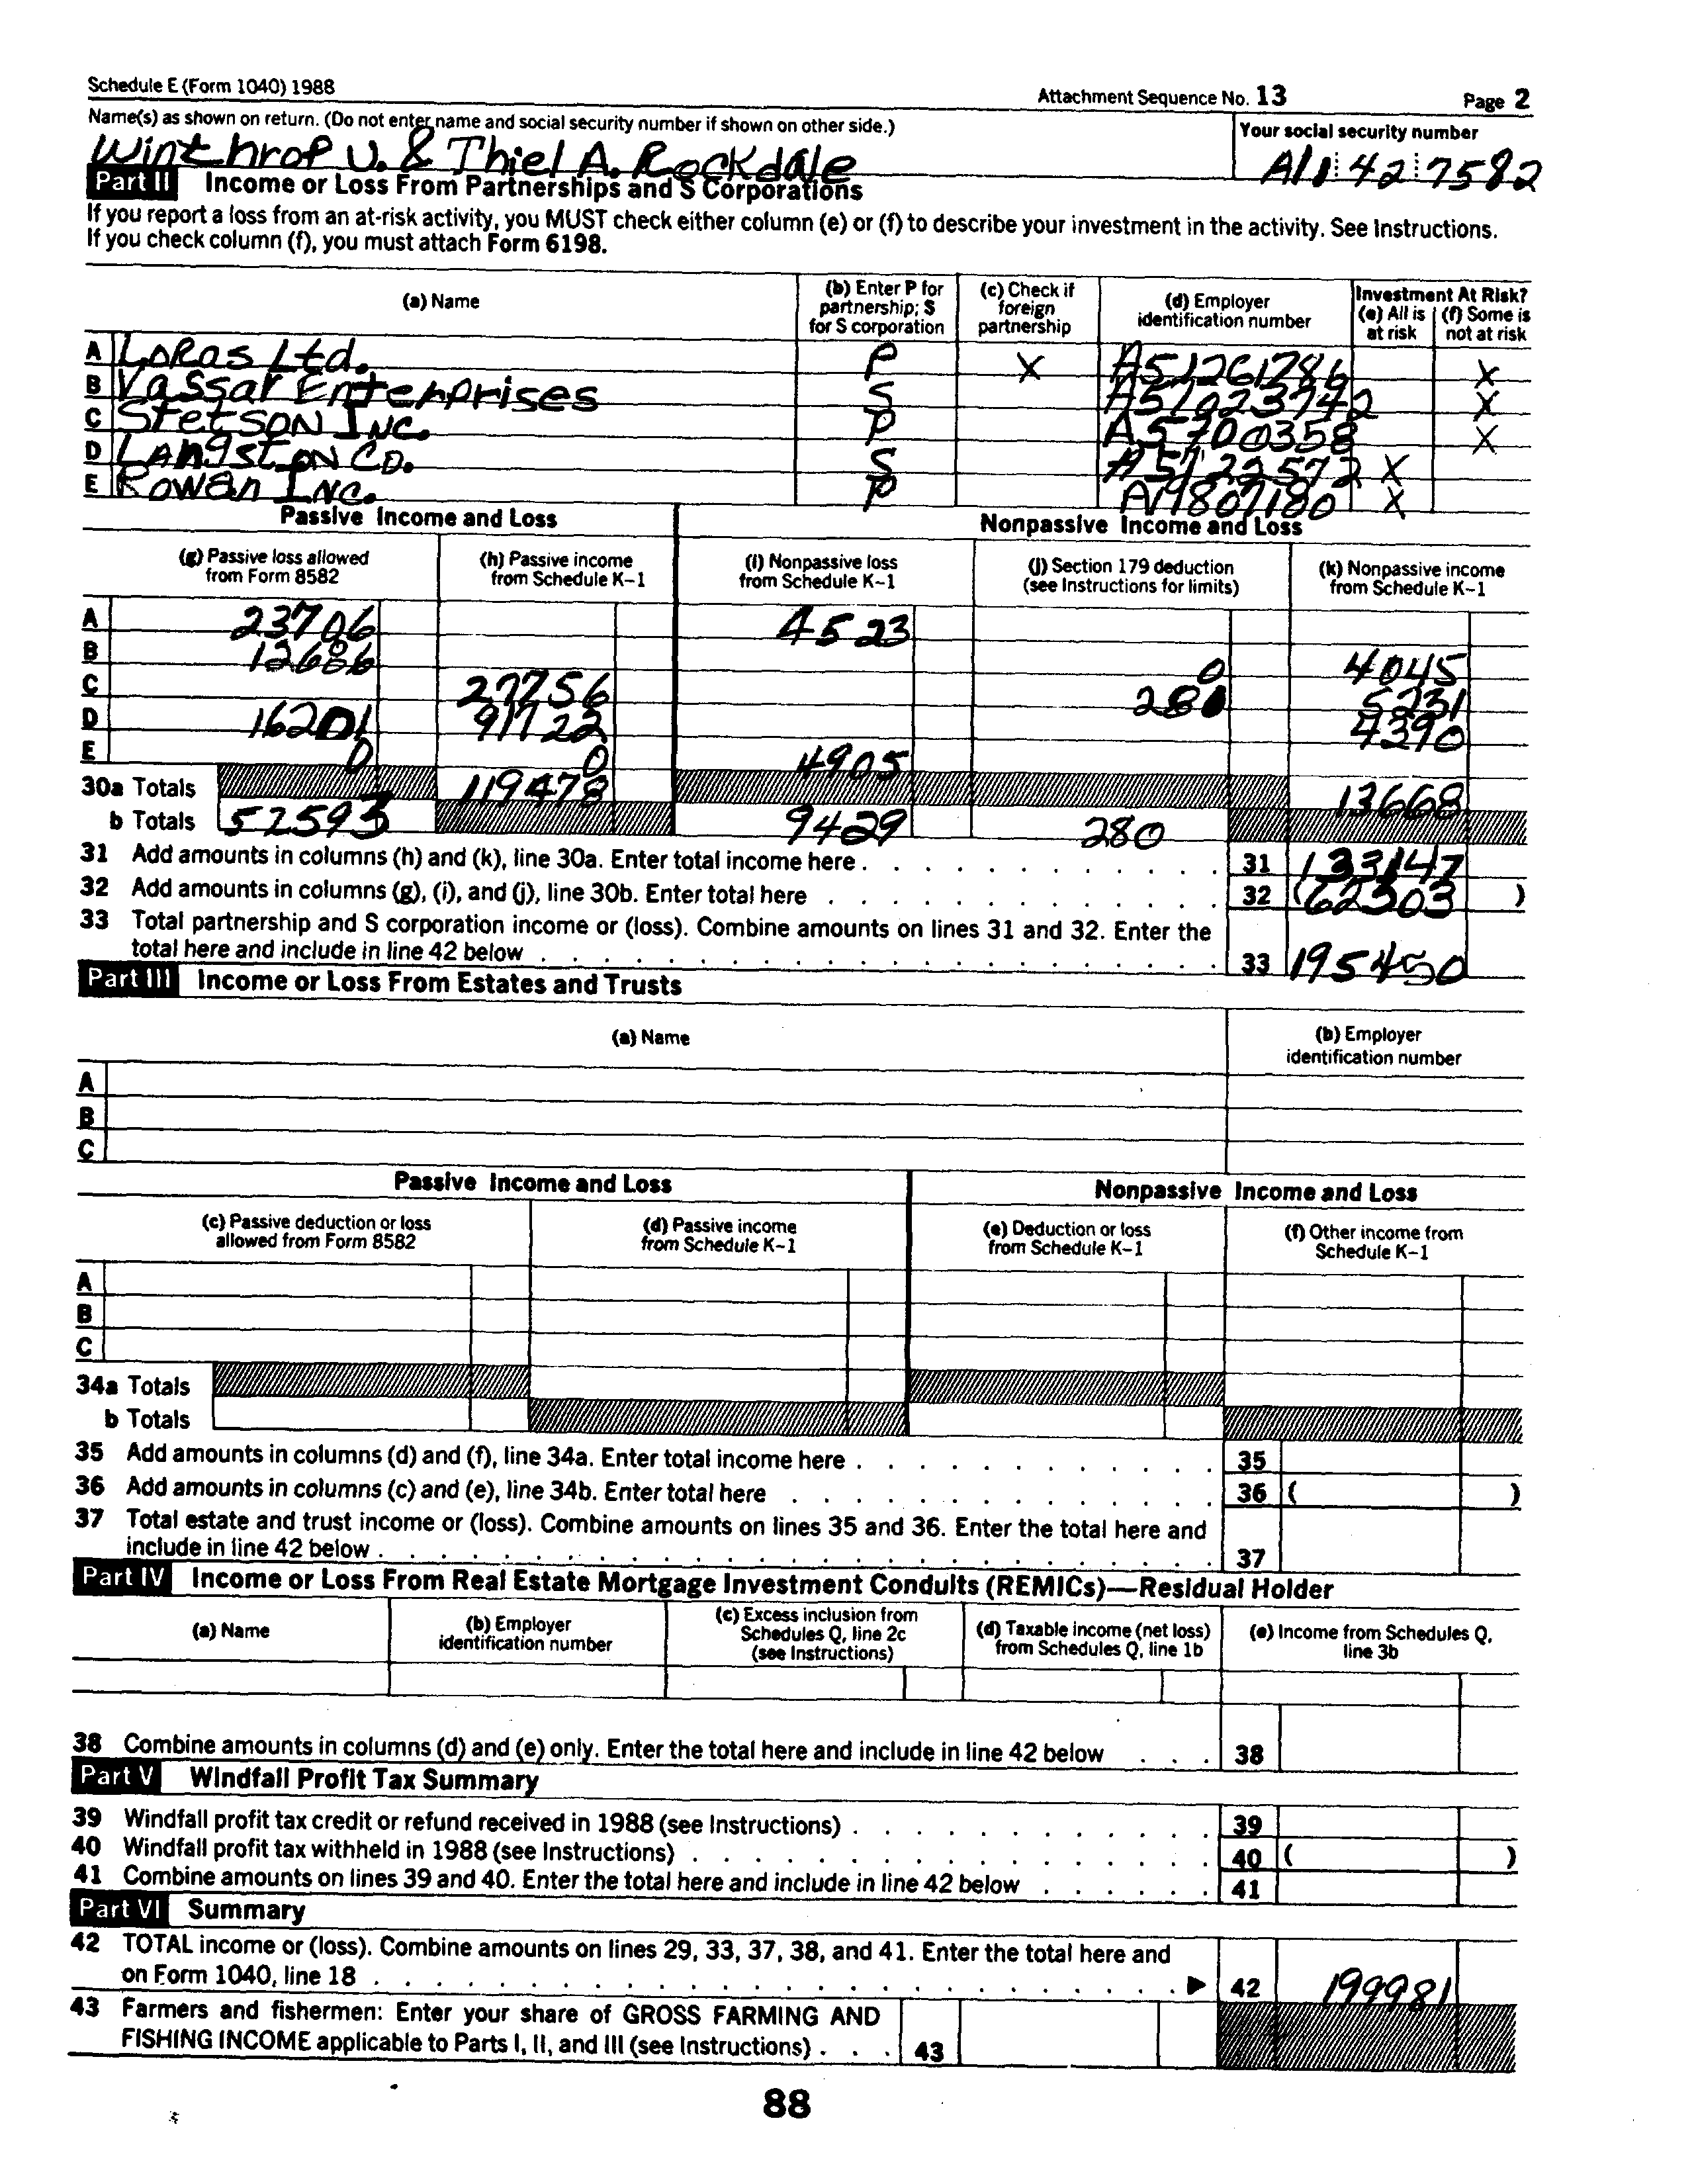 Schedule E (Form 1040) 1988 Attachment Sequence No. 13 Page 2
Name(s) as shown on return. (Do not enter name and social security number if shown on other side.) Your social security number
Winthrop U. & Thiel A. Rockdale A11 42 7582
Part II Income or Loss From Partnerships and S Corporations
If you report a loss from an at-risk activity, you MUST check either column (e) or (f) to describe your investment in the activity. See Instructions.
If you check column (f), you must attach Form 6198.
(a) Name (b) Enter P for partnership; S for S corporation (c) Check if foreign partnership (d) Employer identification number Investment At Risk? (e) All is at risk (f) Some is not at risk
A Loras Ltd. P X A51261786 X
B Vassar Enterprises S A57023742 X
C Stetson Inc. P A5700358 X
D Langston Co. S A5122572 X
E Rowan Inc. P A19807180 X
Passive Income and Loss Nonpassive Income and Loss
(g) Passive loss allowed from Form 8582 (h) Passive income from Schedule K-1 (i) Nonpassive loss from Schedule K-1 (j) Section 179 deduction (see Instructions for limits) (k) Nonpassive income from Schedule K-1
A 23706 4523
B 12686 0 4045
C 27756 280 5231
D 16201 91722 4390
E 0 0 4905
30a Totals 119478 13668
b Totals 52593 9429 280
31 Add amounts in columns (h) and (k), line 30a. Enter total income here 31 133147
32 Add amounts in columns (g), (i), and (j), line 30b. Enter total here 32 (62303)
33 Total partnership and S corporation income or (loss). Combine amounts on lines 31 and 32. Enter the
total here and include in line 42 below 33 195450
Part III Income or Loss From Estates and Trusts
(a) Name (b) Employer identification number
A
B
C
Passive Income and Loss Nonpassive Income and Loss
(c) Passive deduction or loss allowed from Form 8582 (d) Passive income from Schedule K-1 (e) Deduction or loss from Schedule K-1 (f) Other income from Schedule K-1
A
B
C
34a Totals
b Totals
35 Add amounts in columns (d) and (f), line 34a. Enter total income here 35
36 Add amounts in columns (c) and (e), line 34b. Enter total here 36 ( )
37 Total estate and trust income or (loss). Combine amounts on lines 35 and 36. Enter the total here and
include in line 42 below 37
Part IV Income or Loss From Real Estate Mortgage Investment Conduits (REMICs)—Residual Holder
(a) Name (b) Employer identification number (c) Excess inclusion from Schedules Q, line 2c (see Instructions) (d) Taxable income (net loss) from Schedules Q, line 1b (e) Income from Schedules Q, line 3b
38 Combine amounts in columns (d) and (e) only. Enter the total here and include in line 42 below 38
Part V Windfall Profit Tax Summary
39 Windfall profit tax credit or refund received in 1988 (see Instructions) 39
40 Windfall profit tax withheld in 1988 (see Instructions) 40 ( )
41 Combine amounts on lines 39 and 40. Enter the total here and include in line 42 below 41
Part VI Summary
42 TOTAL income or (loss). Combine amounts on lines 29, 33, 37, 38, and 41. Enter the total here and
on Form 1040, line 18 42 199981
43 Farmers and fishermen: Enter your share of GROSS FARMING AND
FISHING INCOME applicable to Parts I, II, and III (see Instructions) 43
88